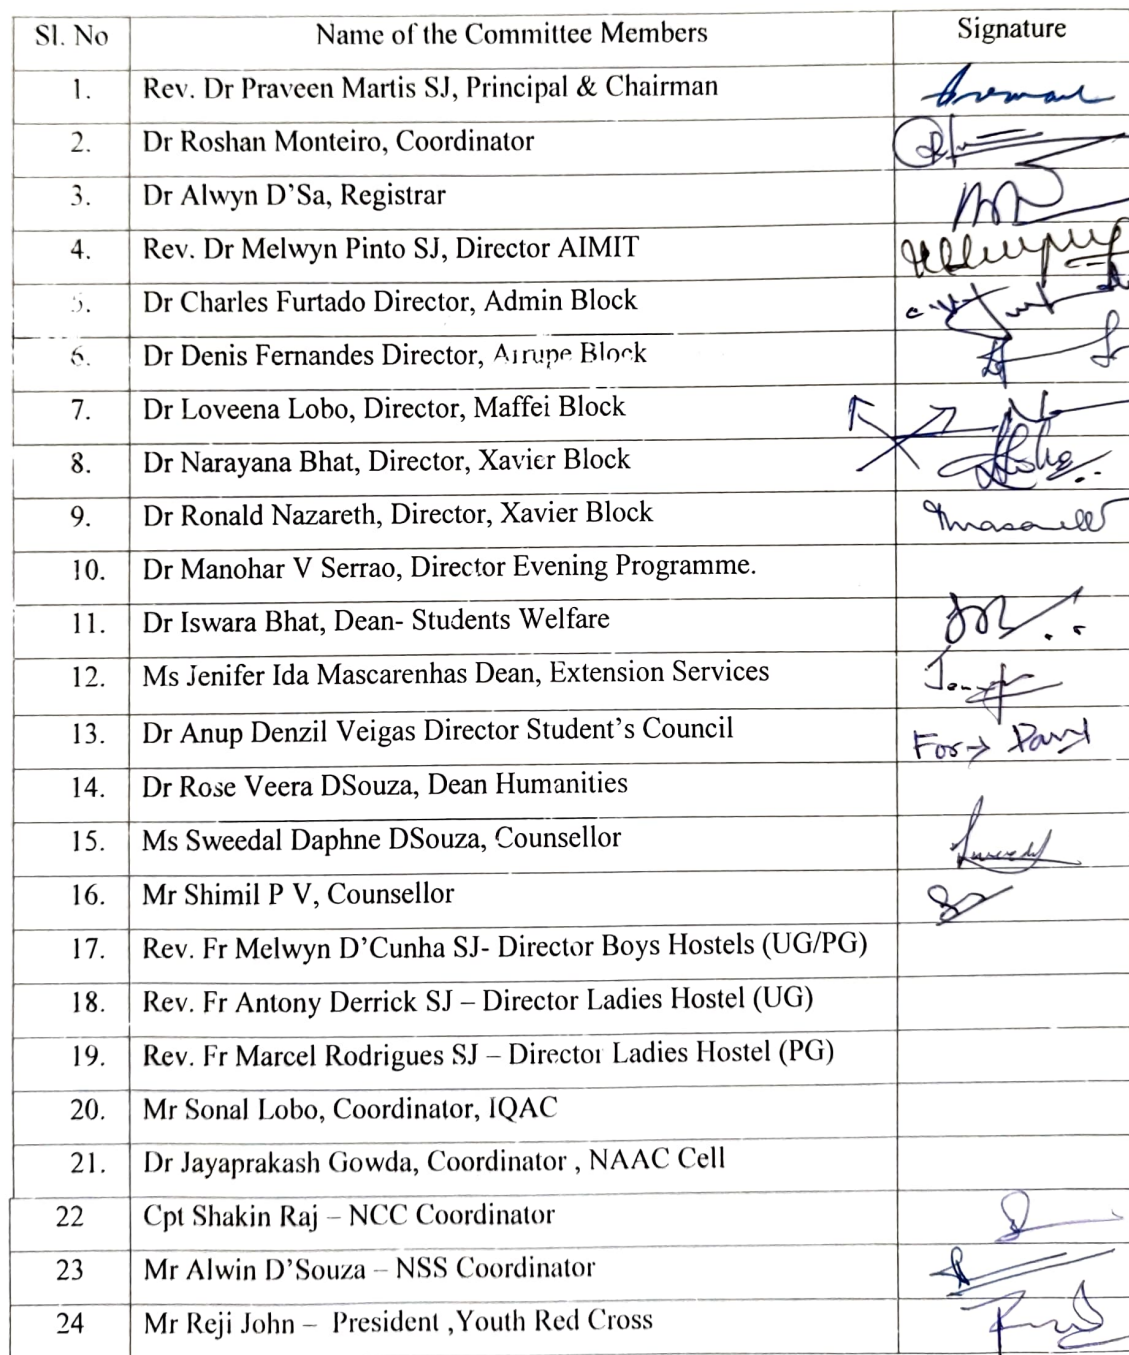 Sl. No Name of the Committee Members Signature
1. Rev. Dr Praveen Martis SJ, Principal & Chairman
2. Dr Roshan Monteiro, Coordinator
3. Dr Alwyn D'Sa, Registrar
4. Rev. Dr Melwyn Pinto SJ, Director AIMIT
5. Dr Charles Furtado Director, Admin Block
6. Dr Denis Fernandes Director, Arrupe Block
7. Dr Loveena Lobo, Director, Maffei Block
8. Dr Narayana Bhat, Director, Xavier Block
9. Dr Ronald Nazareth, Director, Xavier Block
10. Dr Manohar V Serrao, Director Evening Programme.
11. Dr Iswara Bhat, Dean- Students Welfare
12. Ms Jenifer Ida Mascarenhas Dean, Extension Services
13. Dr Anup Denzil Veigas Director Student's Council For→
14. Dr Rose Veera DSouza, Dean Humanities
15. Ms Sweedal Daphne DSouza, Counsellor
16. Mr Shimil P V, Counsellor
17. Rev. Fr Melwyn D'Cunha SJ- Director Boys Hostels (UG/PG)
18. Rev. Fr Antony Derrick SJ – Director Ladies Hostel (UG)
19. Rev. Fr Marcel Rodrigues SJ – Director Ladies Hostel (PG)
20. Mr Sonal Lobo, Coordinator, IQAC
21. Dr Jayaprakash Gowda, Coordinator , NAAC Cell
22 Cpt Shakin Raj – NCC Coordinator
23 Mr Alwin D'Souza – NSS Coordinator
24 Mr Reji John – President ,Youth Red Cross